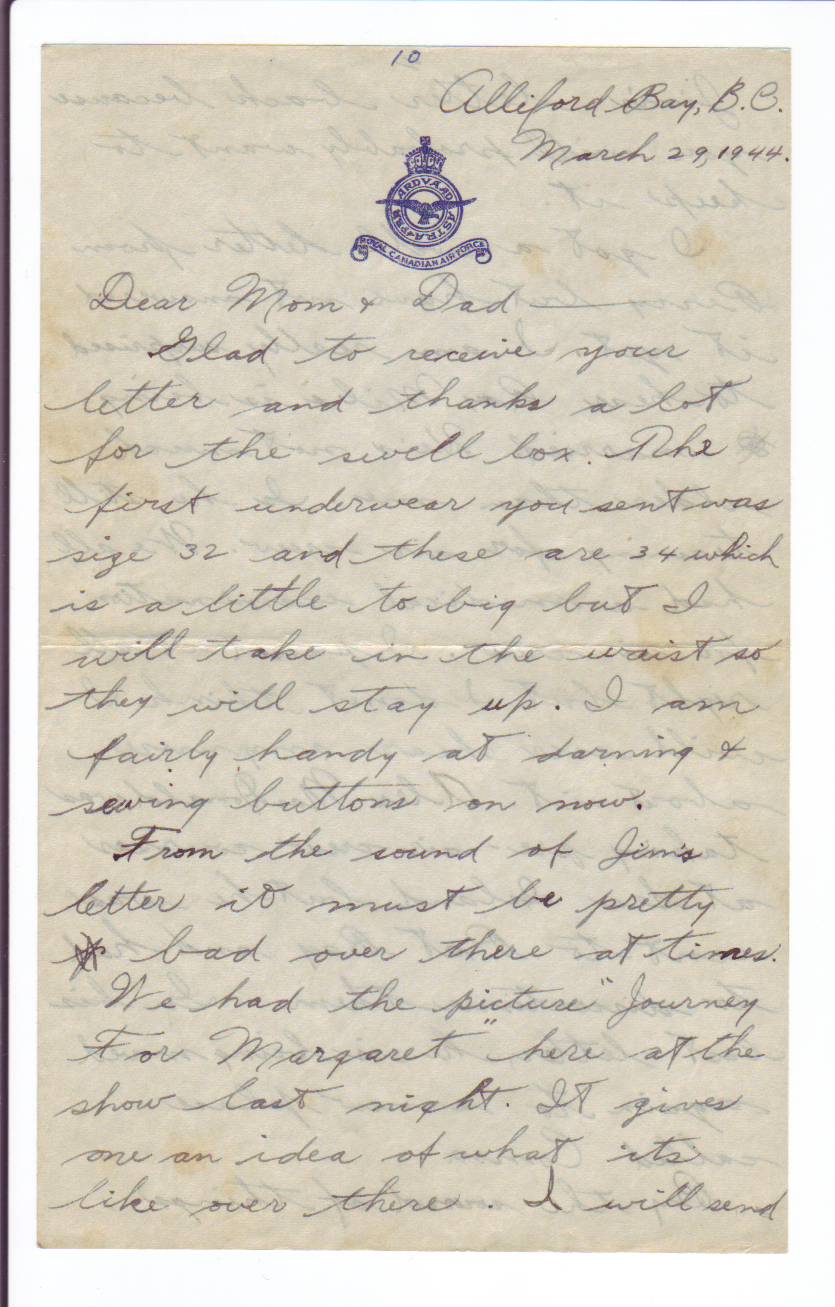 10
Alliford Bay, B.C.
March 29, 1944.
PER ARDVA AD ASTRA
ROYAL CANADIAN AIR FORCE
Dear Mom & Dad —
Glad to receive your
letter and thanks a lot
for the swell box. The
first underwear you sent was
size 32 and these are 34 which
is a little to big but I
will take in the waist so
they will stay up. I am
fairly handy at darning &
sewing buttons on now.
From the sound of Jim's
letter it must be pretty
bad over there at times.
We had the picture "Journey
For Margaret" here at the
show last night. It gives
one an idea of what its
like over there. I will send